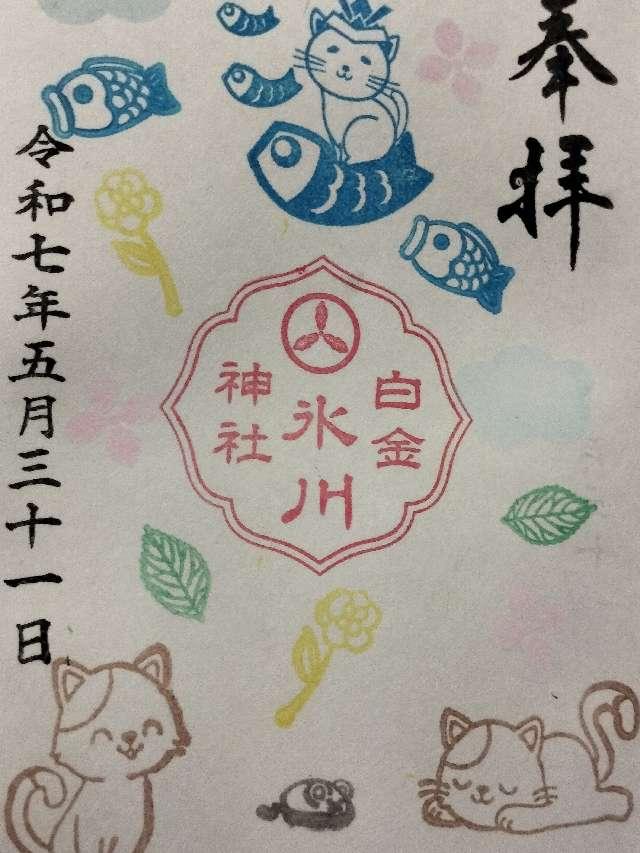 奉拝
白金
氷川
神社
令和七年五月三十一日